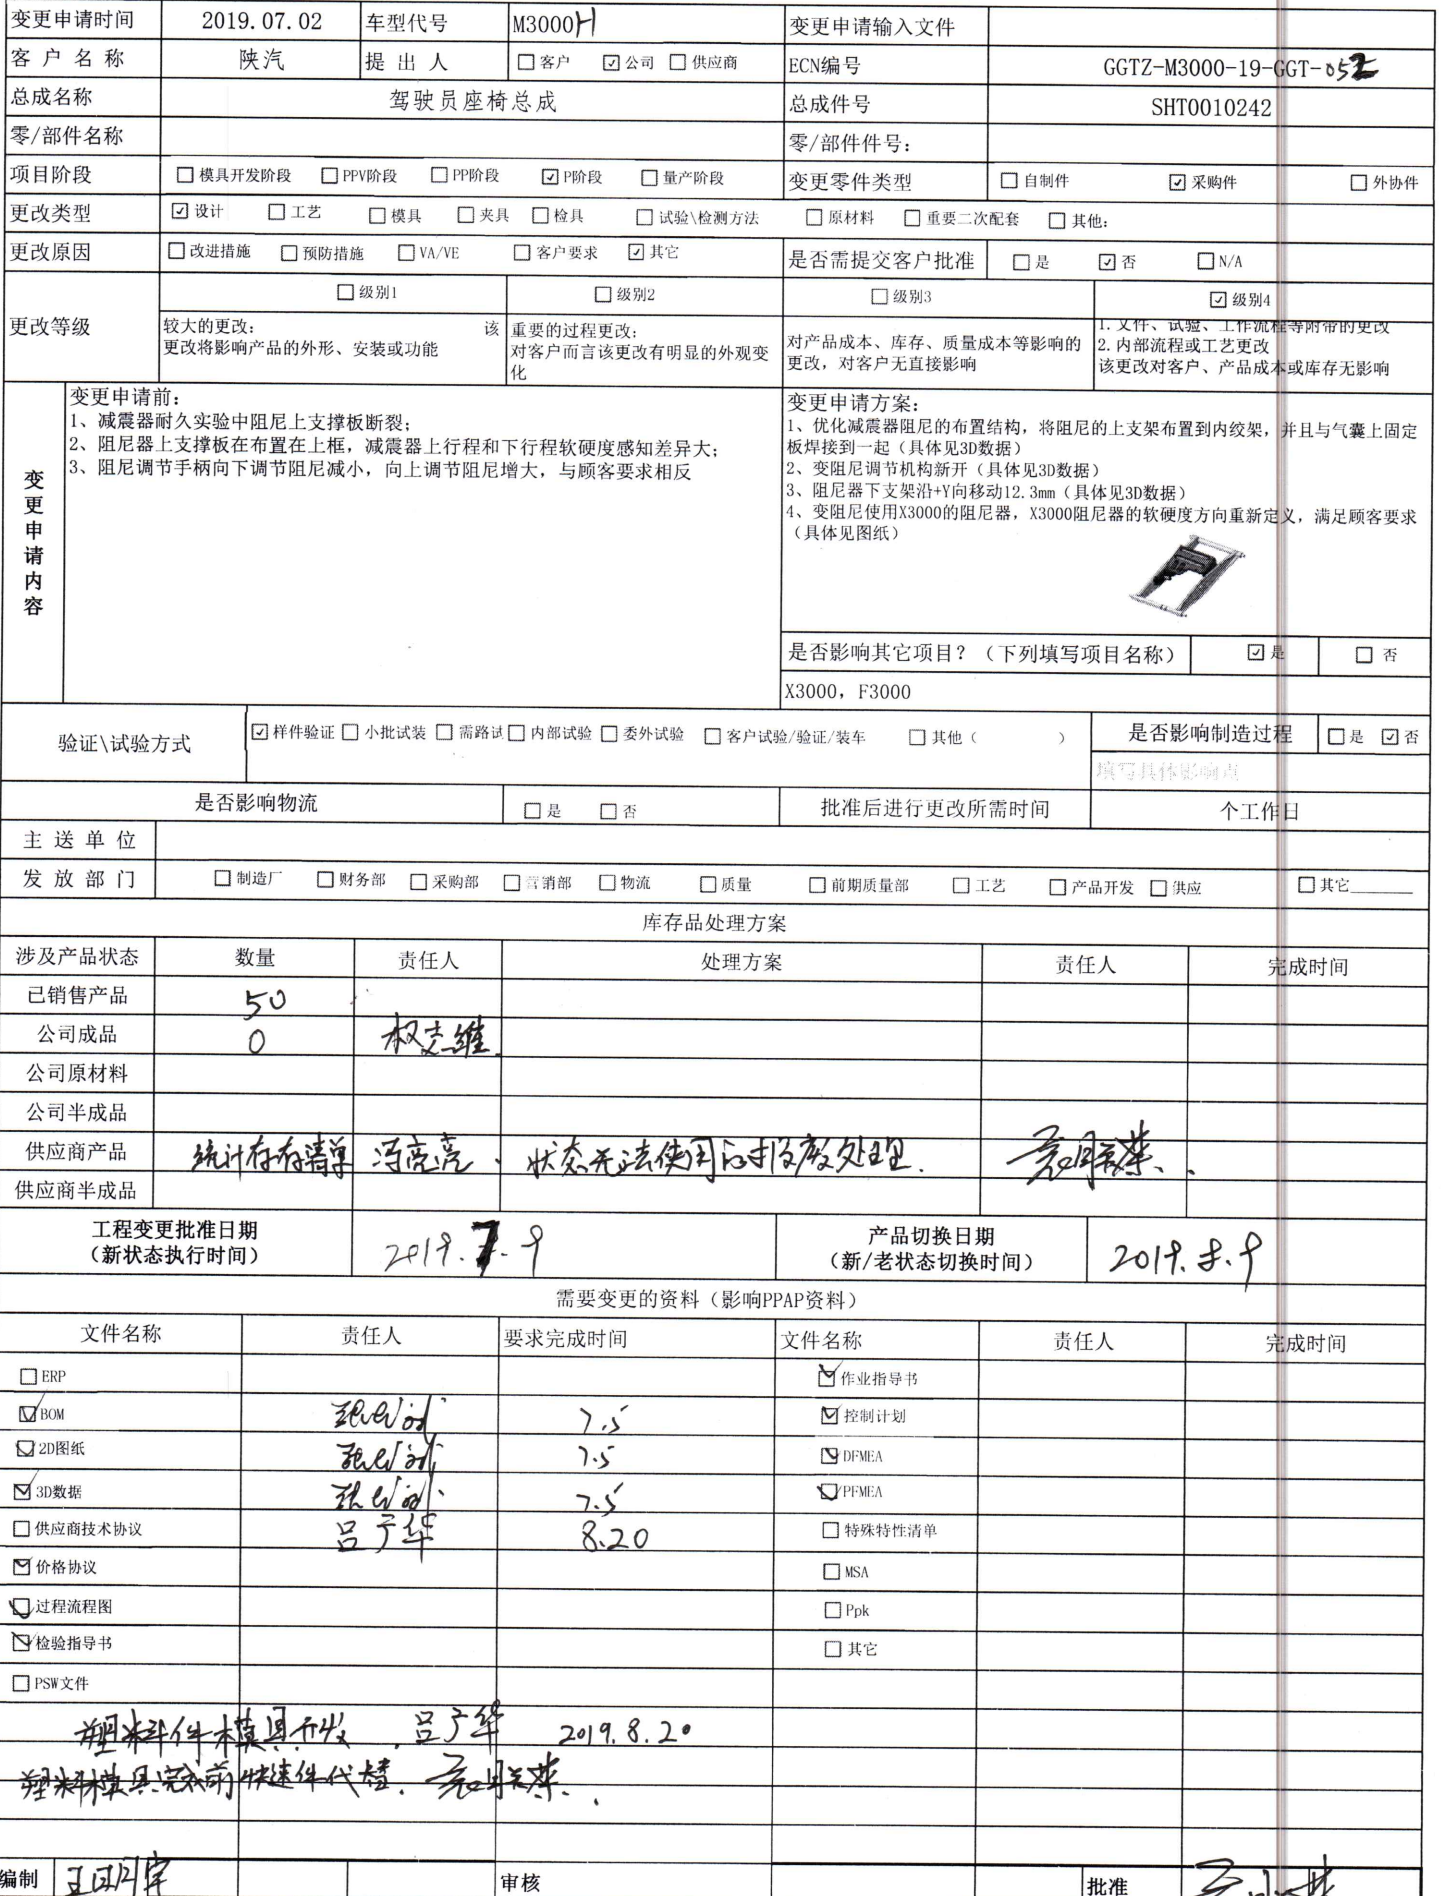 变更申请时间 2019.07.02 车型代号 M3000H 变更申请输入文件
客户名称 陕汽 提出人 □客户 ☑公司 □供应商 ECN编号 GGTZ-M3000-19-GGT-052
总成名称 驾驶员座椅总成 总成件号 SHT0010242
零/部件名称 零/部件件号:
项目阶段 □模具开发阶段 □PPV阶段 □PP阶段 ☑P阶段 □量产阶段 变更零件类型 □自制件 ☑采购件 □外协件
更改类型 ☑设计 □工艺 □模具 □夹具 □检具 □试验\检测方法 □原材料 □重要二次配套 □其他:
更改原因 □改进措施 □预防措施 □VA/VE □客户要求 ☑其它 是否需提交客户批准 □是 ☑否 □N/A
更改等级 □级别1 □级别2 □级别3 ☑级别4
较大的更改: 该
更改将影响产品的外形、安装或功能
重要的过程更改:
对客户而言该更改有明显的外观变
化
对产品成本、库存、质量成本等影响的
更改，对客户无直接影响
1.文件、试验、工作流程等附带的更改
2.内部流程或工艺更改
该更改对客户、产品成本或库存无影响
变更申请内容
变更申请前:
1、减震器耐久实验中阻尼上支撑板断裂;
2、阻尼器上支撑板在布置在上框，减震器上行程和下行程软硬度感知差异大;
3、阻尼调节手柄向下调节阻尼减小，向上调节阻尼增大，与顾客要求相反
变更申请方案:
1、优化减震器阻尼的布置结构，将阻尼的上支架布置到内绞架，并且与气囊上固定
板焊接到一起（具体见3D数据）
2、变阻尼调节机构新开（具体见3D数据）
3、阻尼器下支架沿+Y向移动12.3mm（具体见3D数据）
4、变阻尼使用X3000的阻尼器，X3000阻尼器的软硬度方向重新定义，满足顾客要求
（具体见图纸）
是否影响其它项目？（下列填写项目名称） ☑是 □否
X3000，F3000
验证\试验方式 ☑样件验证 □小批试装 □需路试 □内部试验 □委外试验 □客户试验/验证/装车 □其他（ ） 是否影响制造过程 □是 ☑否
填写具体影响点
是否影响物流 □是 □否 批准后进行更改所需时间 个工作日
主送单位
发放部门 □制造厂 □财务部 □采购部 □营销部 □物流 □质量 □前期质量部 □工艺 □产品开发 □供应 □其它
库存品处理方案
涉及产品状态 数量 责任人 处理方案 责任人 完成时间
已销售产品 50
公司成品 0
公司原材料
公司半成品
供应商产品 统计库存清单 冯亮亮 状态无法使用的报废处理.
供应商半成品
工程变更批准日期 2019.7.9 产品切换日期 2019.8.9
（新状态执行时间） （新/老状态切换时间）
需要变更的资料（影响PPAP资料）
文件名称 责任人 要求完成时间 文件名称 责任人 完成时间
□ERP ☑作业指导书
☑BOM 7.5 ☑控制计划
☑2D图纸 7.5 ☑DFMEA
☑3D数据 7.5 ☑PFMEA
□供应商技术协议 吕广华 8.20 □特殊特性清单
☑价格协议 □MSA
☑过程流程图 □Ppk
☑检验指导书 □其它
□PSW文件
塑料件模具开发 吕广华 2019.8.20
塑料模具完成前快速件代替.
编制 审核 批准